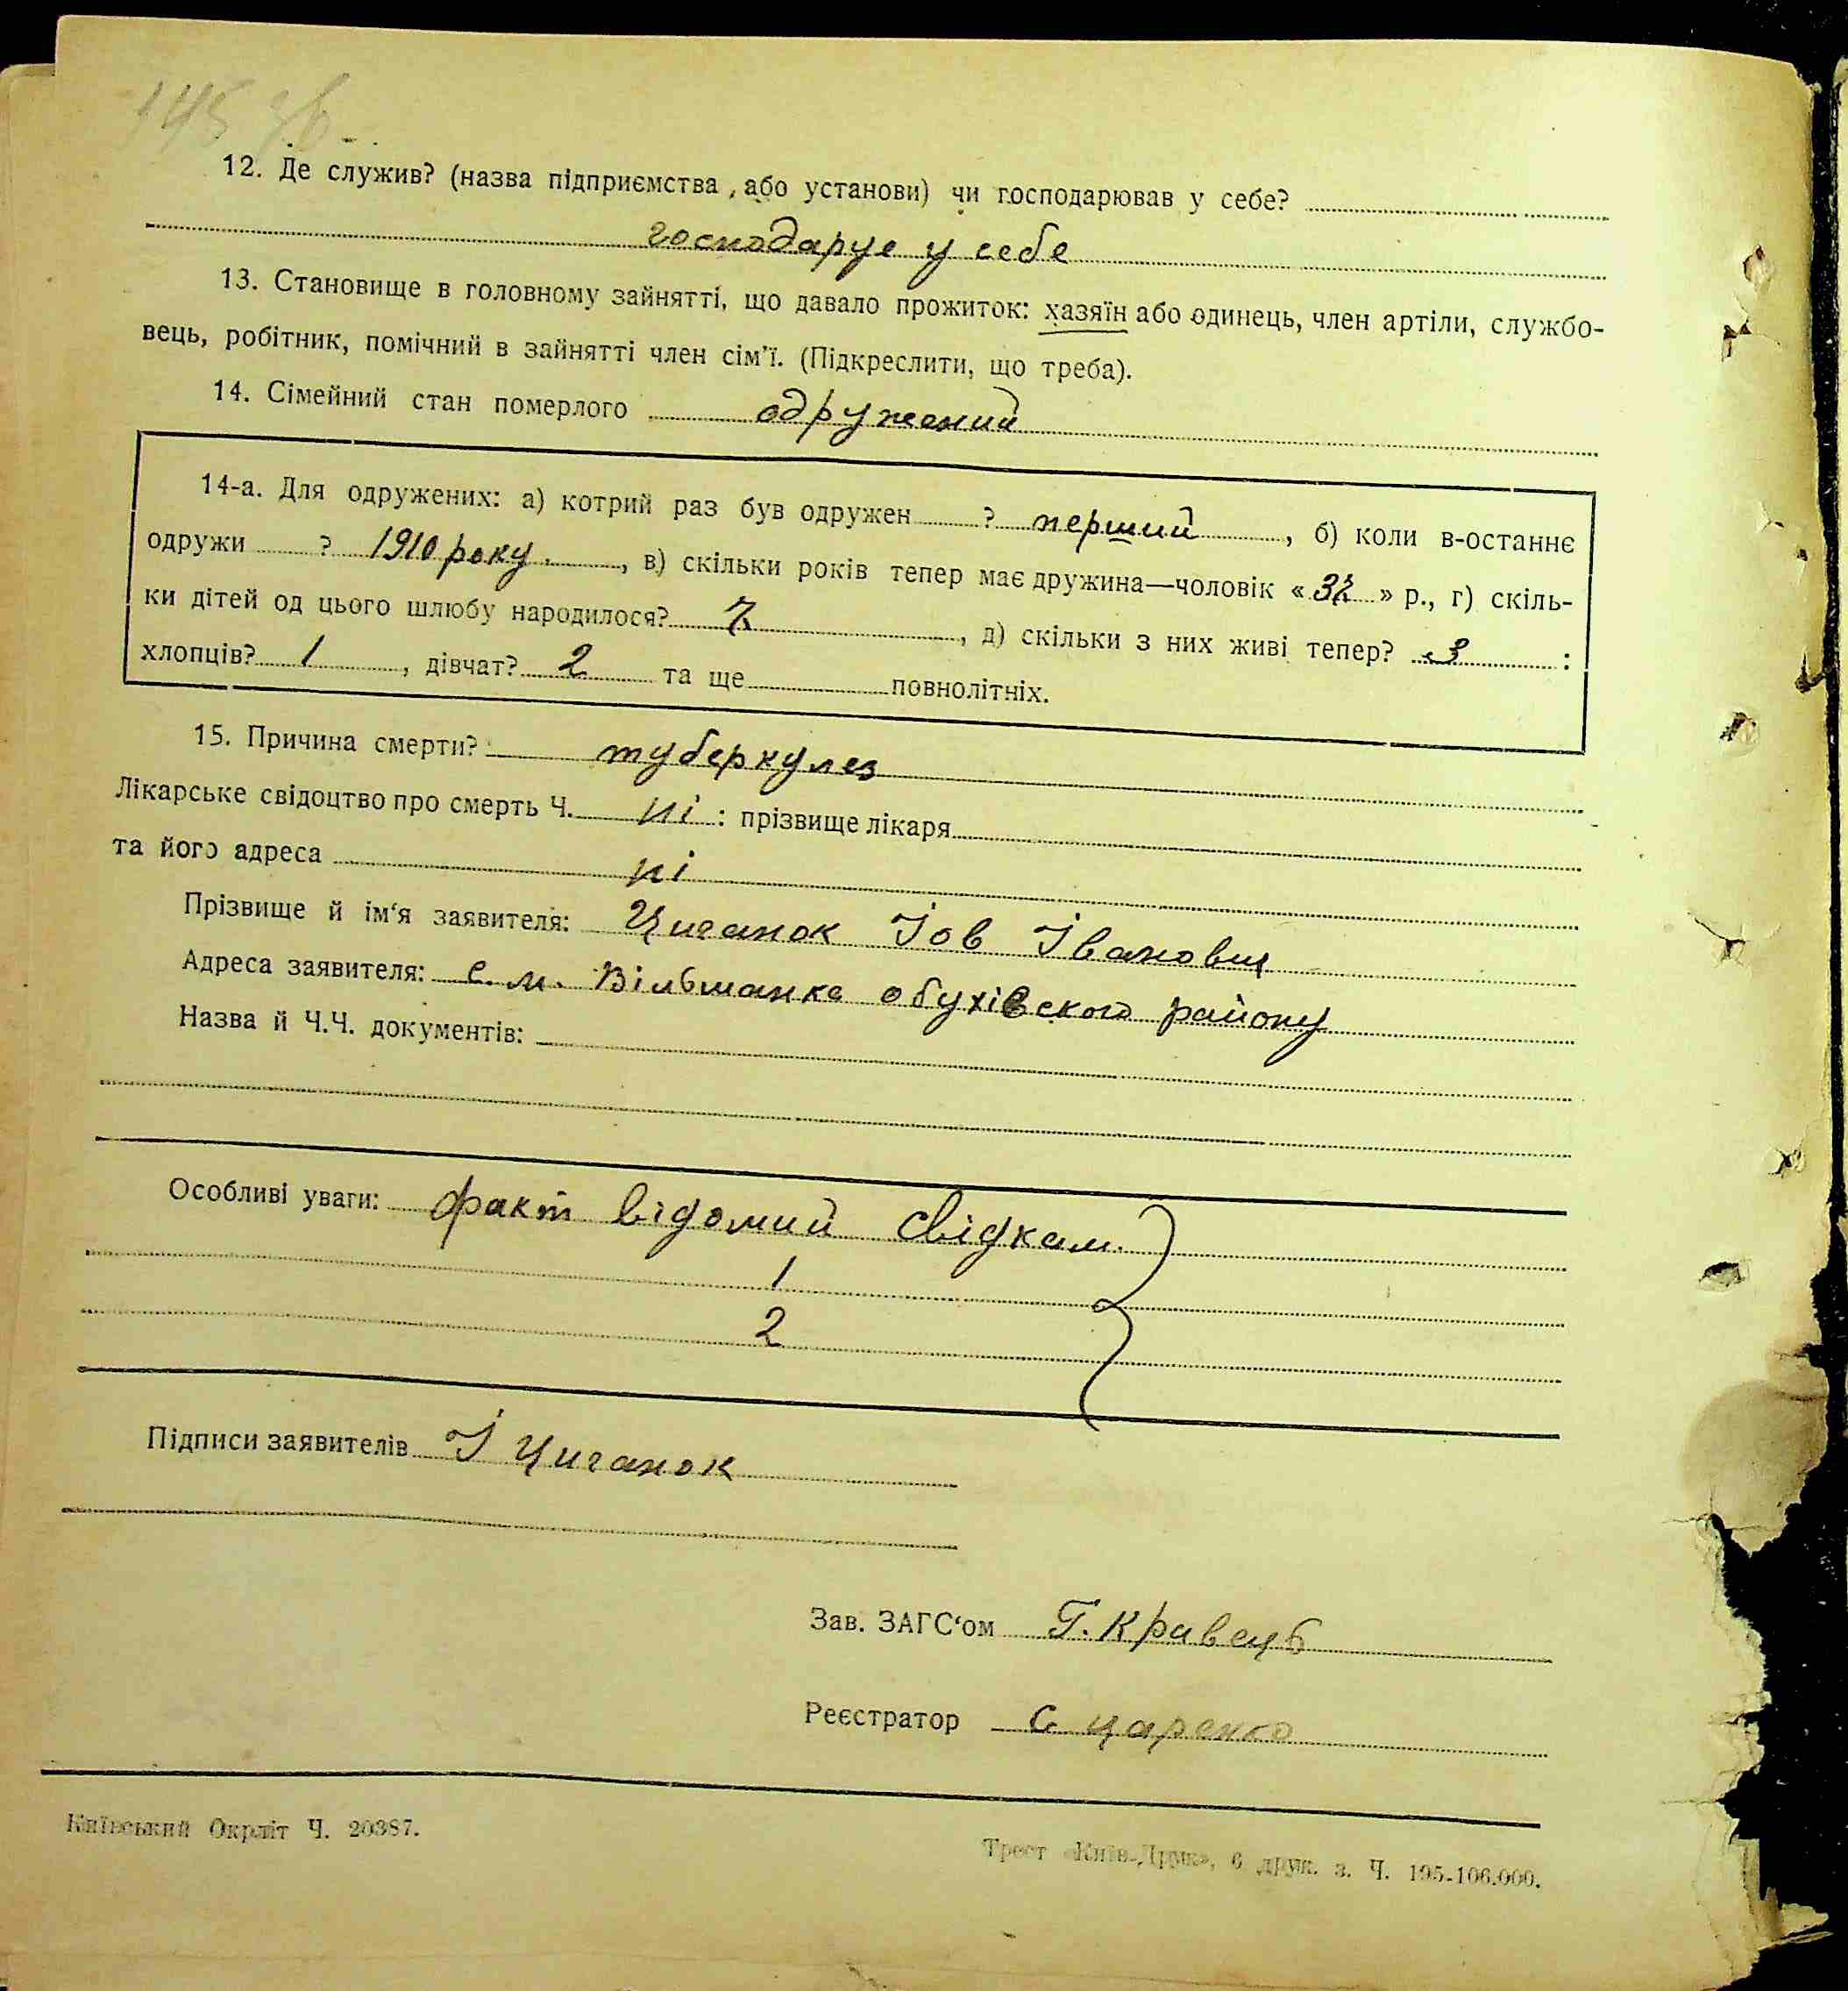 145 зв.
12. Де служив? (назва підприємства, або установи) чи господарював у себе?
господарує у себе
13. Становище в головному зайнятті, що давало прожиток: хазяїн або одинець, член артіли, службо-
вець, робітник, помічний в зайнятті член сім'ї. (Підкреслити, що треба).
14. Сімейний стан померлого одружений
14-а. Для одружених: а) котрий раз був одружен ? перший, б) коли в-останнє
одружи ? 1910 року., в) скільки років тепер має дружина—чоловік « » р., г) скіль-
ки дітей од цього шлюбу народилося? 7, д) скільки з них живі тепер? 3 :
хлопців? 1, дівчат? 2 та ще повнолітніх.
15. Причина смерти? туберкулез
Лікарське свідоцтво про смерть Ч. ні : прізвище лікаря
та його адреса ні
Прізвище й ім'я заявителя: Циганок Іов Іванович
Адреса заявителя: с. м. Вільшанка обухівского району
Назва й Ч.Ч. документів:
Особливі уваги: факт відомий свідкам.
1
2
Підписи заявителів І Циганок
Зав. ЗАГС'ом Г. Кравець
Реєстратор С царенко
Київський Окрліт Ч. 20387.
Трест «Київ-Друк», 6 друк. з. Ч. 195-106.000.